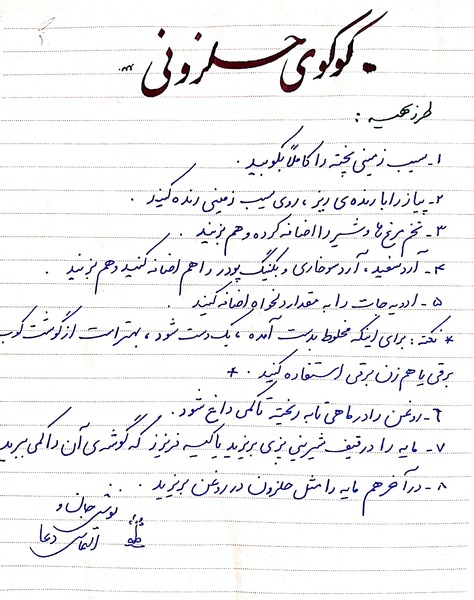 کوکوی حلزونی
طرز تهیه :
۱- سیب زمینی پخته را کاملاً بکوبید .
۲- پیاز را با رنده ی ریز ، روی سیب زمینی رنده کنید .
۳- تخم مرغ ها و شیر را اضافه کرده و هم بزنید .
۴- آرد سفید ، آرد سوخاری و بکینگ پودر را هم اضافه کنید و هم بزنید .
۵- ادویه جات را به مقدار دلخواه اضافه کنید
* نکته : برای اینکه مخلوط بدست آمده ، یکدست شود ، بهتر است از گوشت کوب
برقی یا هم زن برقی استفاده کنید . *
۶- روغن را در ماهی تابه ریخته تا کمی داغ شود .
۷- مایه را در قیف شیرینی پزی بریزید یا کیسه فریزر که گوشه ی آن را کمی ببرید
۸- در آخر هم مایه را مثل حلزون در روغن بریزید .
نوش جان و
التماس دعا